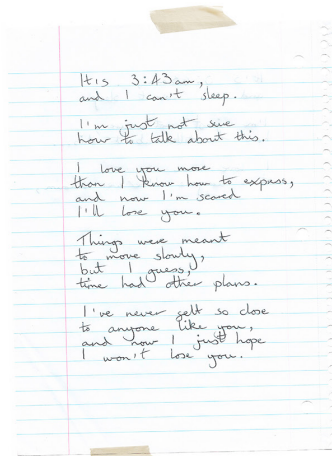 It is 3:43am,
and I can't sleep.
I'm just not sure
how to talk about this.
I love you more
than I know how to express,
and now I'm scared
I'll lose you.
Things were meant
to move slowly,
but I guess,
time had other plans.
I've never felt so close
to anyone like you,
and now I just hope
I won't lose you.